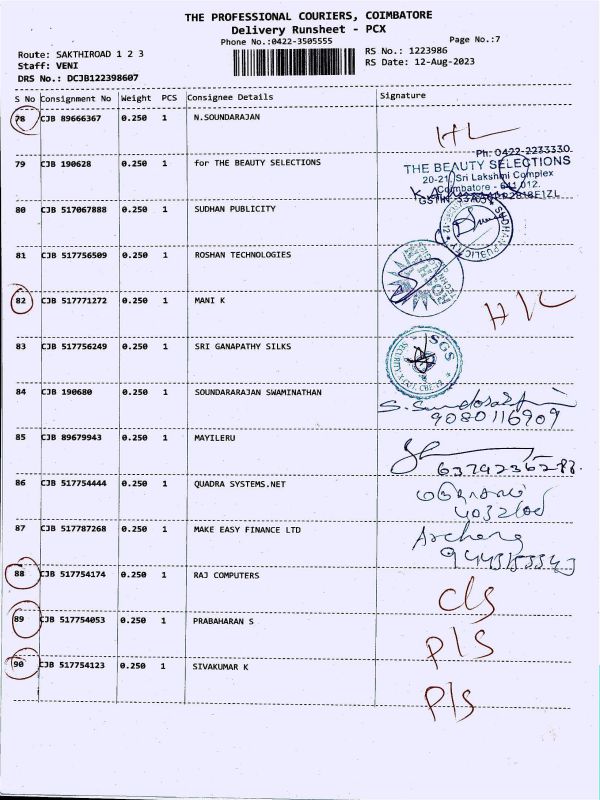 THE PROFESSIONAL COURIERS, COIMBATORE
Delivery Runsheet - PCX
Phone No.:0422-3505555
Page No.:7
Route: SAKTHIROAD 1 2 3
RS No.: 1223986
Staff: VENI
RS Date: 12-Aug-2023
DRS No.: DCJB122398607
S No Consignment No Weight PCS Consignee Details Signature
78 CJB 89666367 0.250 1 N.SOUNDARAJAN
HL
79 CJB 190628 0.250 1 for THE BEAUTY SELECTIONS
Ph: 0422-2233330
THE BEAUTY SELECTIONS
20-21, Sri Lakshmi Complex
Coimbatore - 641 012.
80 CJB 517067888 0.250 1 SUDHAN PUBLICITY
81 CJB 517756509 0.250 1 ROSHAN TECHNOLOGIES
82 CJB 517771272 0.250 1 MANI K
83 CJB 517756249 0.250 1 SRI GANAPATHY SILKS
SGS
SECURITY
84 CJB 190680 0.250 1 SOUNDARARAJAN SWAMINATHAN
9080116909
85 CJB 89679943 0.250 1 MAYILERU
86 CJB 517754444 0.250 1 QUADRA SYSTEMS.NET
87 CJB 517787268 0.250 1 MAKE EASY FINANCE LTD
88 CJB 517754174 0.250 1 RAJ COMPUTERS
cls
89 CJB 517754053 0.250 1 PRABAHARAN S
P/S
90 CJB 517754123 0.250 1 SIVAKUMAR K
P/S